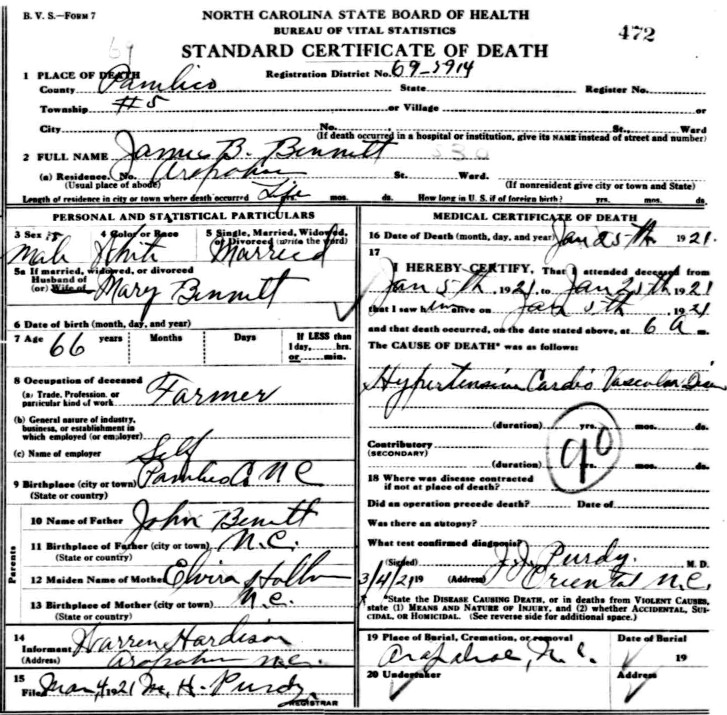 B. V. S.—Form 7
NORTH CAROLINA STATE BOARD OF HEALTH
BUREAU OF VITAL STATISTICS
STANDARD CERTIFICATE OF DEATH
472
67
1 PLACE OF DEATH Registration District No. 69-5914
County Pamlico State Register No.
Township #5 or Village or
City No. St., Ward
(If death occurred in a hospital or institution, give its NAME instead of street and number)
2 FULL NAME James B. Bennett 530
(a) Residence. No. Arapahoe St. Ward.
(Usual place of abode) (If nonresident give city or town and State)
Length of residence in city or town where death occurred Life mos. ds. How long in U. S. if of foreign birth? yrs. mos. ds.
PERSONAL AND STATISTICAL PARTICULARS
3 Sex 4 Color or Race 5 Single, Married, Widowed, or Divorced (write the word)
Male White Married
5a If married, widowed, or divorced
Husband of
(or) Wife of Mary Bennett
6 Date of birth (month, day, and year)
7 Age 66 years Months Days If LESS than 1 day, hrs. or min.
8 Occupation of deceased
(a) Trade, Profession, or particular kind of work Farmer
(b) General nature of industry, business, or establishment in which employed (or employer)
(c) Name of employer Self
9 Birthplace (city or town) Pamlico Co NC
(State or country)
Parents
10 Name of Father John Benett
11 Birthplace of Father (city or town) N.C.
(State or country)
12 Maiden Name of Mother Elvira
13 Birthplace of Mother (city or town) N.C.
(State or country)
14
Informant Warren Hardison
(Address) Arapahoe N.C.
15
Filed Mar 4 1921 H. Purdy
REGISTRAR
MEDICAL CERTIFICATE OF DEATH
16 Date of Death (month, day, and year) Jan 25th 1921
17
I HEREBY CERTIFY, That I attended deceased from
Jan 5th, 1921, to Jan 25th, 1921
that I saw him alive on Jan 5th 1921
and that death occurred, on the date stated above, at 6 A m.
The CAUSE OF DEATH* was as follows:
Hypertensive Cardio Vascular
(duration) yrs. mos. ds.
90
Contributory
(SECONDARY)
(duration) yrs. mos. ds.
18 Where was disease contracted
if not at place of death?
Did an operation precede death? Date of
Was there an autopsy?
What test confirmed diagnosis?
(Signed) J. J. Purdy. M. D.
3/4/21 19 (Address) Oriental N.C.
*State the DISEASE CAUSING DEATH, or in deaths from VIOLENT CAUSES,
state (1) MEANS AND NATURE OF INJURY, and (2) whether ACCIDENTAL, SUI-
CIDAL, OR HOMICIDAL. (See reverse side for additional space.)
19 Place of Burial, Cremation, or removal Date of Burial
Arapahoe, N.C. 19
20 Undertaker Address